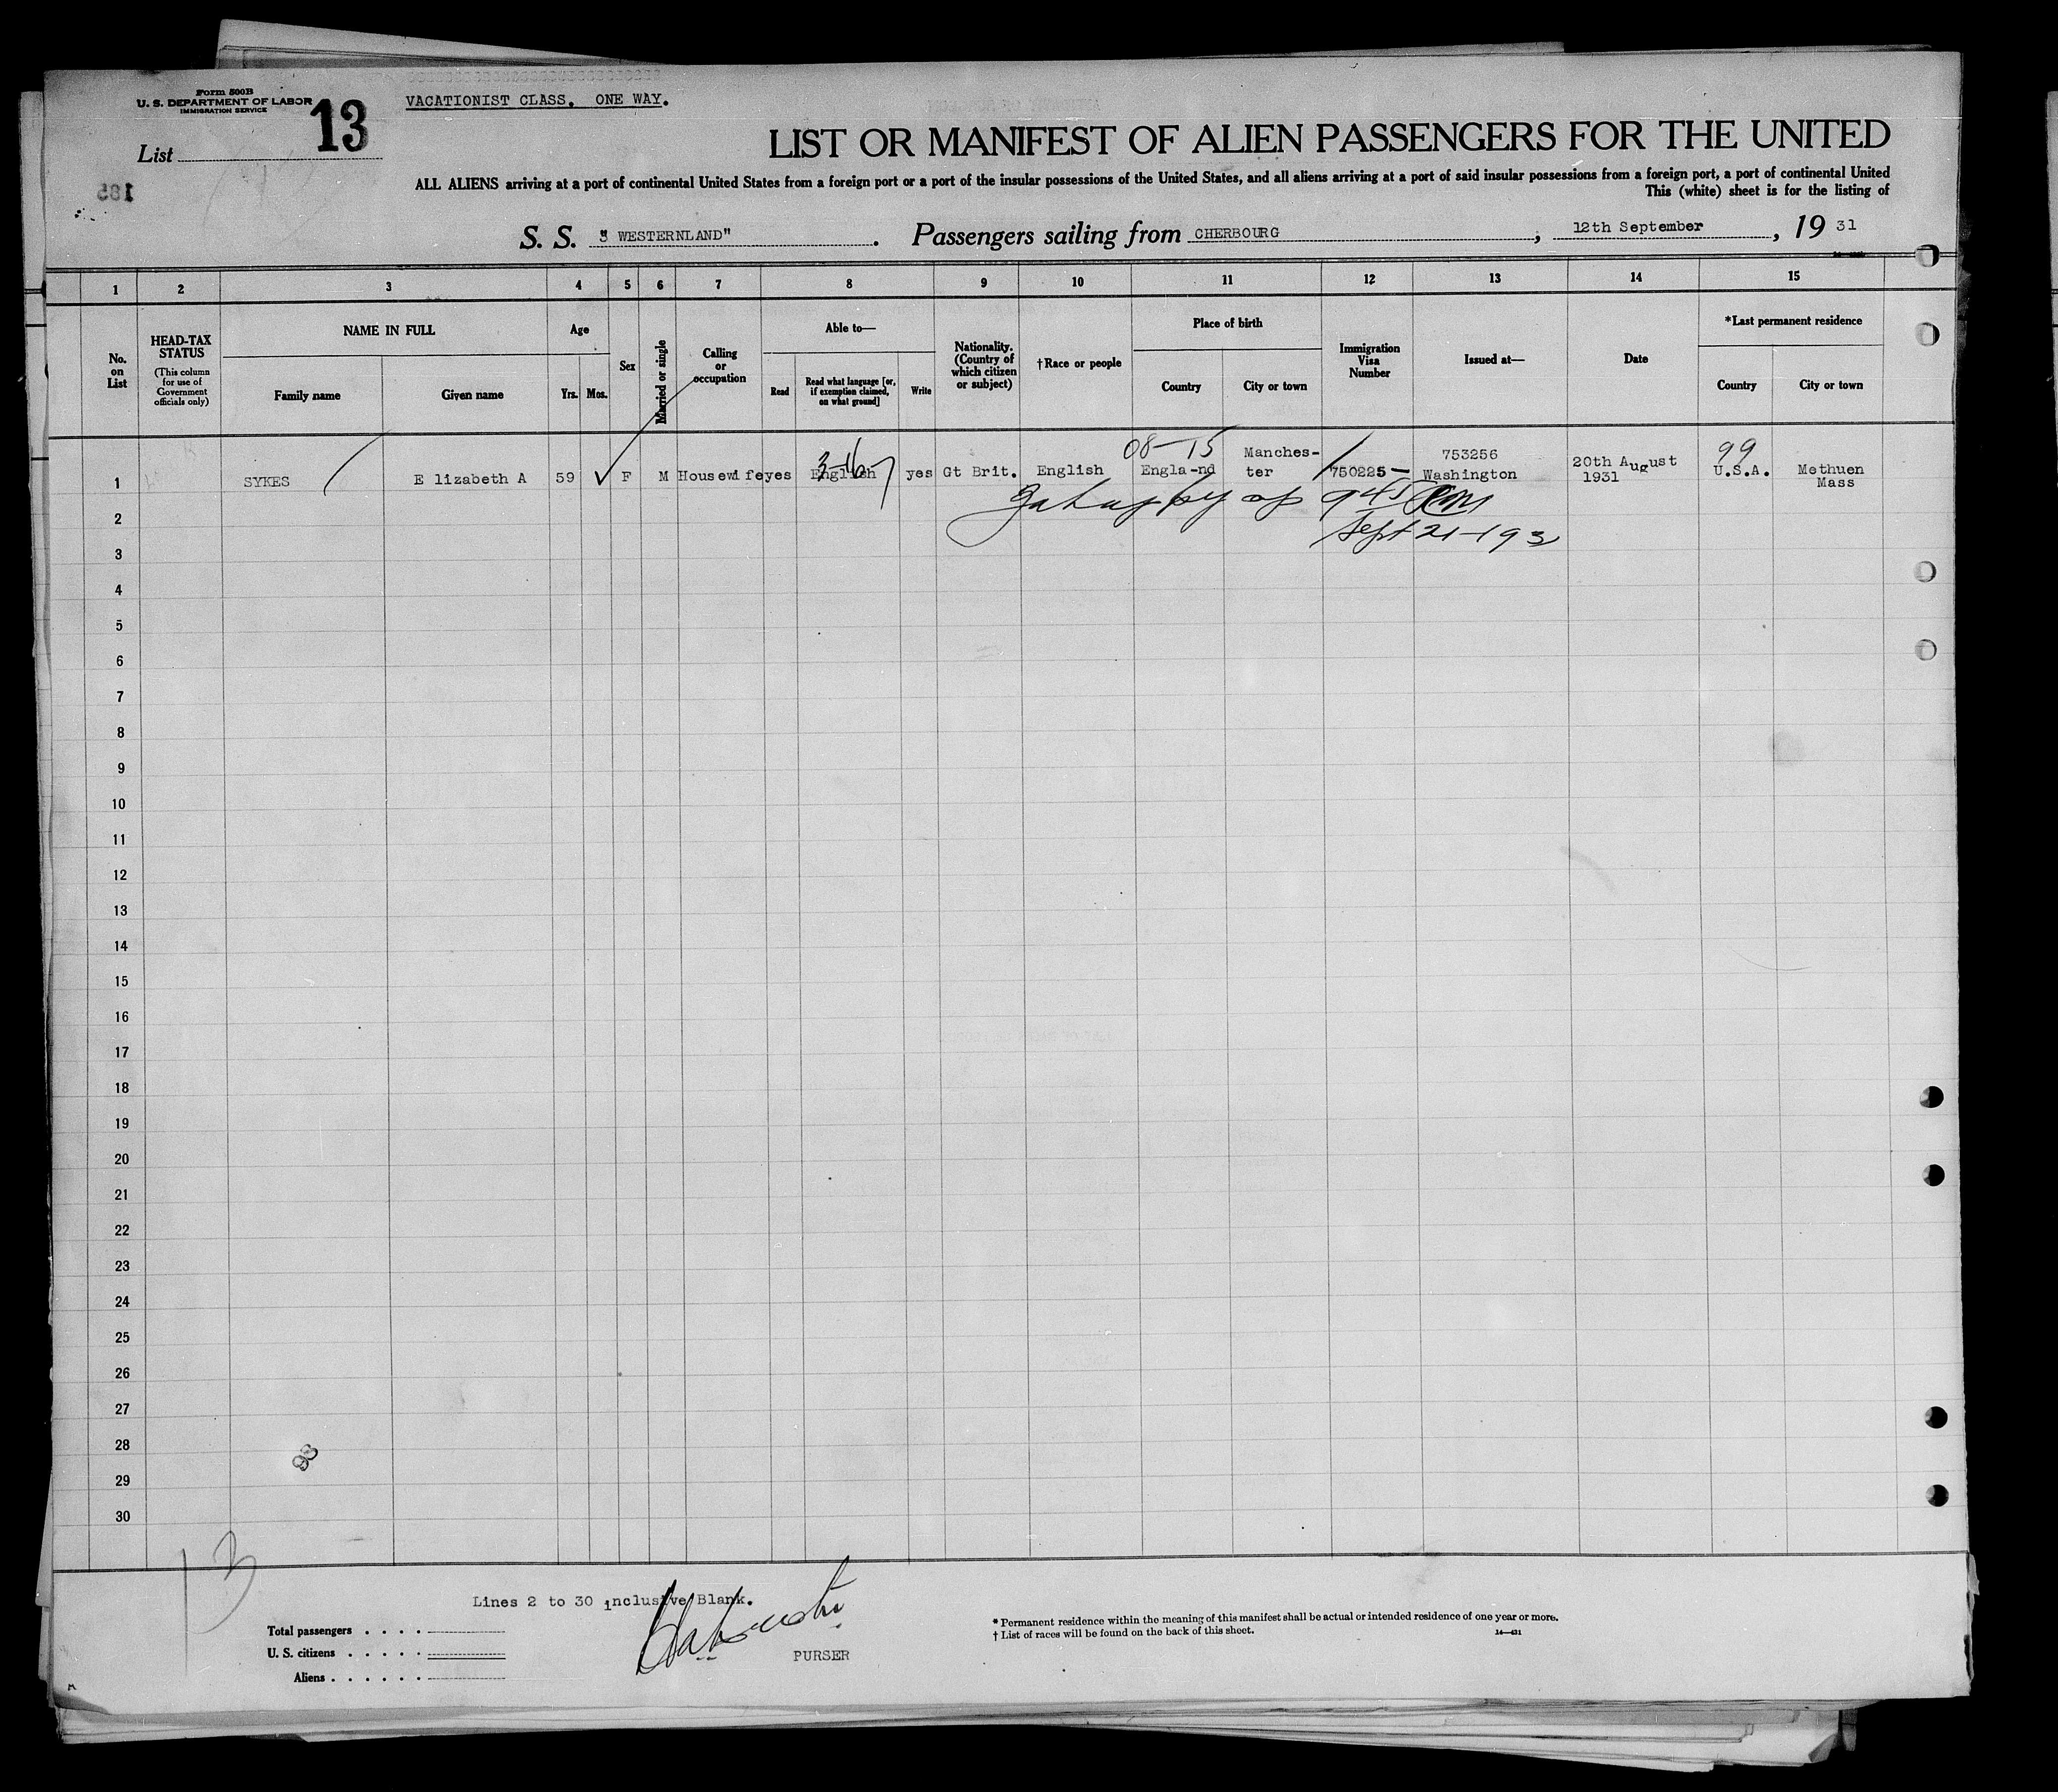 Form 500B
U. S. DEPARTMENT OF LABOR
IMMIGRATION SERVICE
List 13
185
VACATIONIST CLASS. ONE WAY.
LIST OR MANIFEST OF ALIEN PASSENGERS FOR THE UNITED
ALL ALIENS arriving at a port of continental United States from a foreign port or a port of the insular possessions of the United States, and all aliens arriving at a port of said insular possessions from a foreign port, a port of continental United
This (white) sheet is for the listing of
S. S. " WESTERNLAND" . Passengers sailing from CHERBOURG , 12th September , 19 31
1 2 3 4 5 6 7 8 9 10 11 12 13 14 15
No. on List
HEAD-TAX STATUS
(This column for use of Government officials only)
NAME IN FULL
Family name
Given name
Age
Yrs. Mos.
Sex
Married or single
Calling or occupation
Able to—
Read
Read what language [or, if exemption claimed, on what ground]
Write
Nationality. (Country of which citizen or subject)
†Race or people
Place of birth
Country
City or town
Immigration Visa Number
Issued at—
Date
*Last permanent residence
Country
City or town
08-15
99
1 SYKES E lizabeth A 59 ✓ F M Housewife yes English yes Gt Brit. English Engla-nd Manches-ter 750225- 753256 Washington 20th August 1931 U.S.A. Methuen Mass
3-16
945
Sept 21-193
2
3
4
5
6
7
8
9
10
11
12
13
14
15
16
17
18
19
20
21
22
23
24
25
26
27
28
29
30
13
Lines 2 to 30 inclusive Blank.
Total passengers . . . .
U. S. citizens . . . . .
Aliens . . . . . .
PURSER
* Permanent residence within the meaning of this manifest shall be actual or intended residence of one year or more.
† List of races will be found on the back of this sheet.
14—421